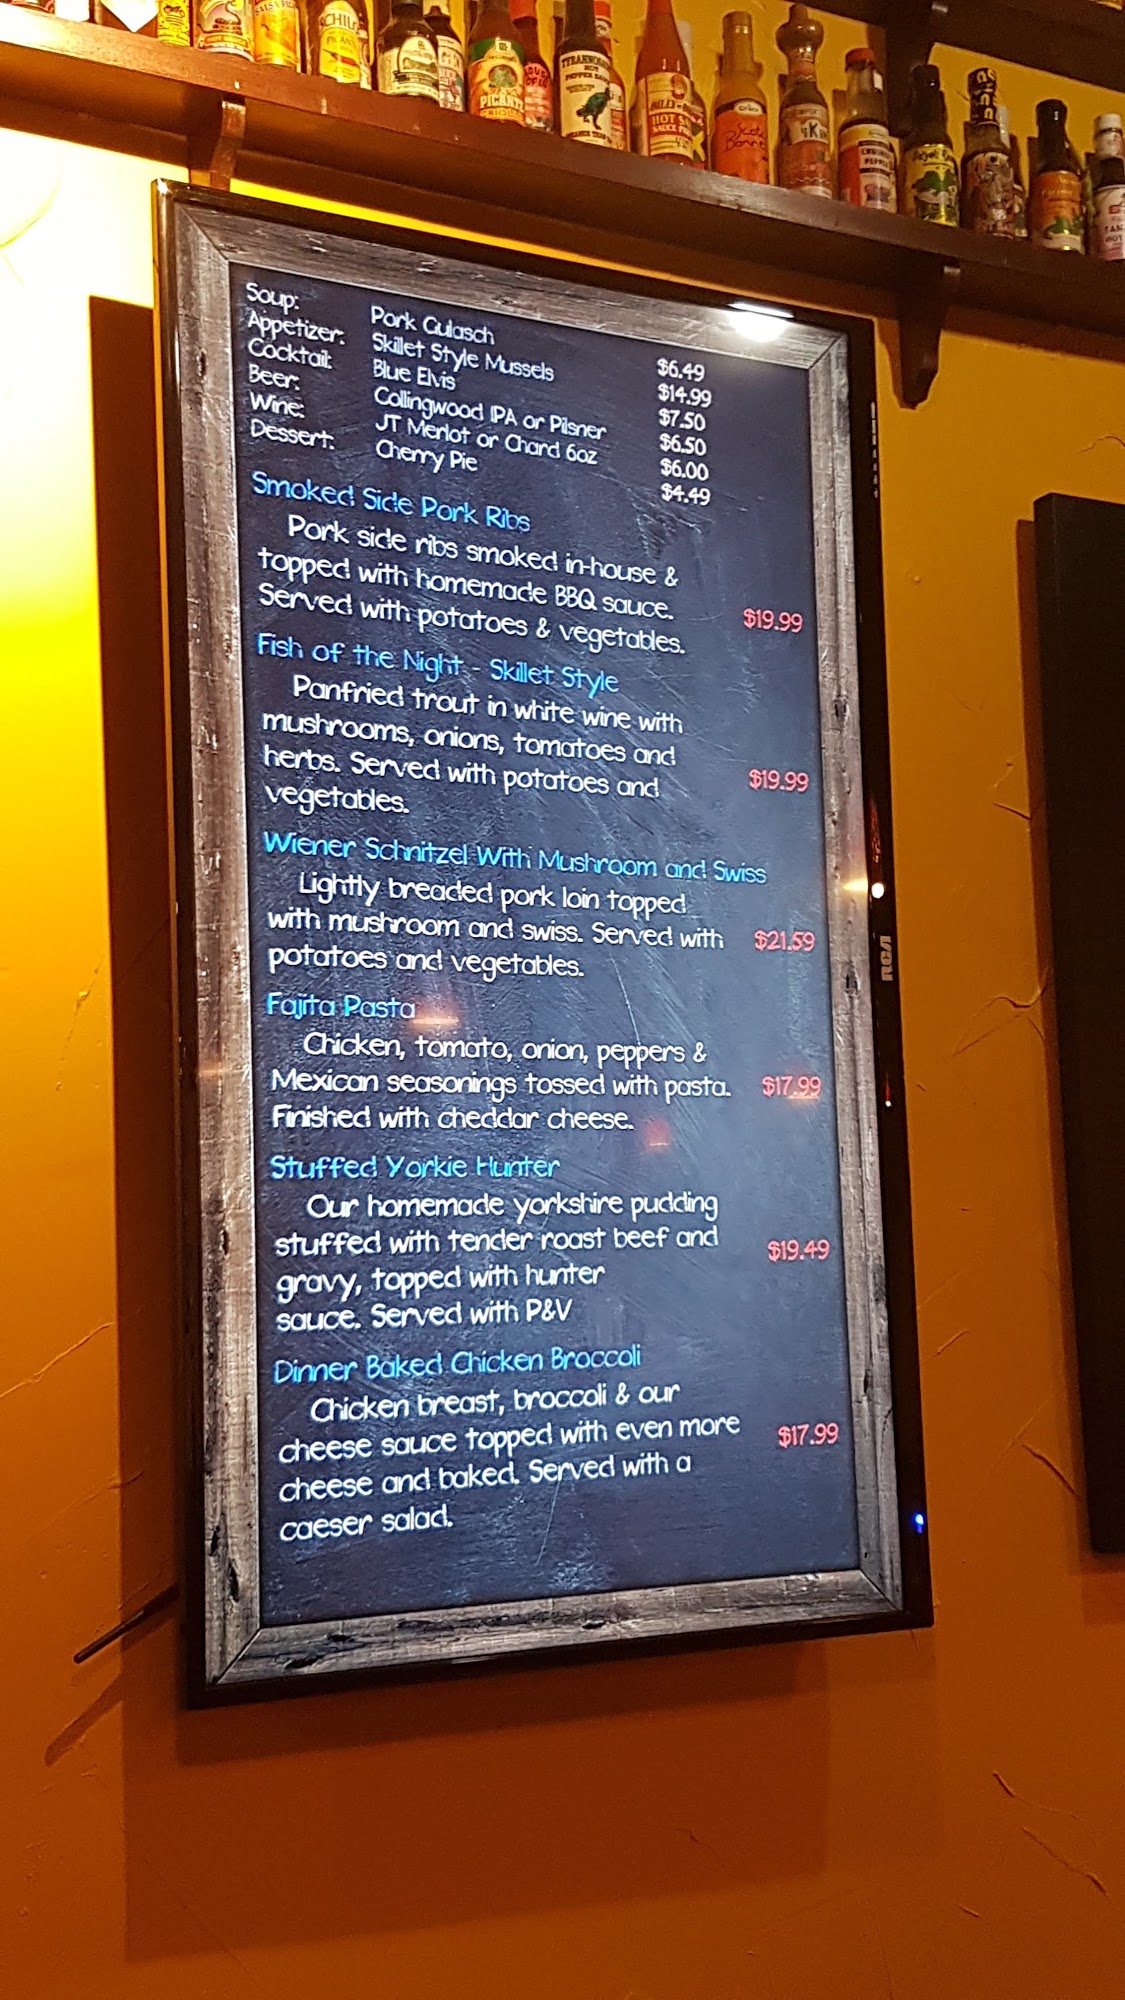 SALSA
PICANTE
TYRANNO
HOT
PEPPER SAUCE
HOT
SAUCE
Scotch
Bonnet
Soup: Pork Gulasch $6.49
Appetizer: Skillet Style Mussels $14.99
Cocktail: Blue Elvis $7.50
Beer: Collingwood IPA or Pilsner $6.50
Wine: JT Merlot or Chard 6oz $6.00
Dessert: Cherry Pie $4.49
Smoked Side Pork Ribs
Pork side ribs smoked in-house &
topped with homemade BBQ sauce.
Served with potatoes & vegetables. $19.99
Fish of the Night - Skillet Style
Panfried trout in white wine with
mushrooms, onions, tomatoes and
herbs. Served with potatoes and $19.99
vegetables.
Wiener Schnitzel With Mushroom and Swiss
Lightly breaded pork loin topped
with mushroom and swiss. Served with $21.59
potatoes and vegetables.
Fajita Pasta
Chicken, tomato, onion, peppers &
Mexican seasonings tossed with pasta. $17.99
Finished with cheddar cheese.
Stuffed Yorkie Hunter
Our homemade yorkshire pudding
stuffed with tender roast beef and $19.49
gravy, topped with hunter
sauce. Served with P&V
Dinner Baked Chicken Broccoli
Chicken breast, broccoli & our
cheese sauce topped with even more $17.99
cheese and baked. Served with a
caeser salad.
RCA